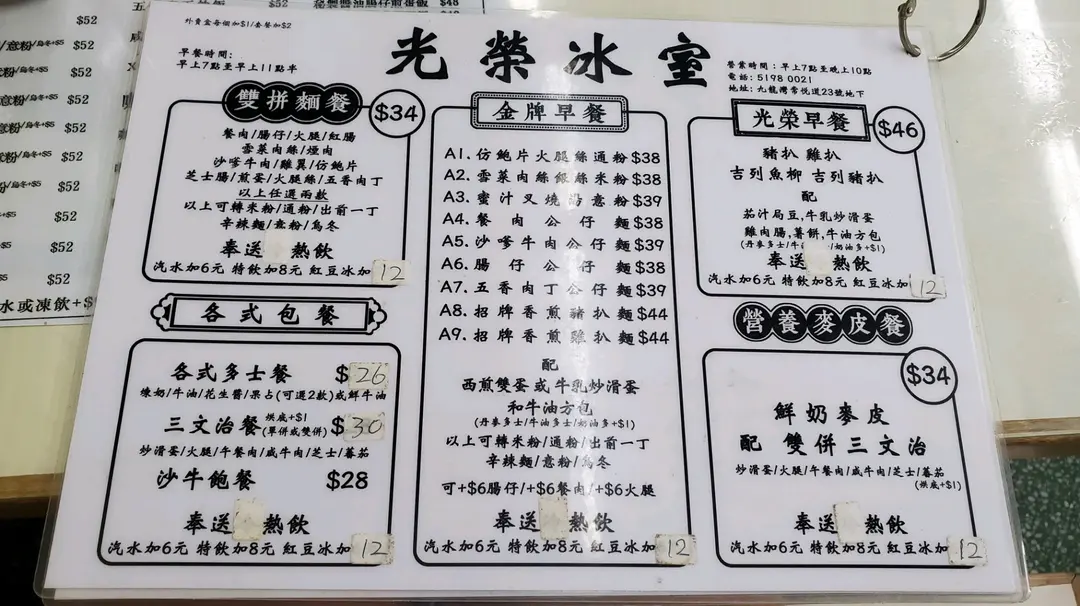 外賣盒每個加$1/套餐加$2
早餐時間:
早上7點至早上11點半
光榮冰室
營業時間:早上7點至晚上10點
電話:5198 0021
地址:九龍灣常悅道23號地下
雙拼麵餐
$34
餐肉/腸仔/火腿/紅腸
雪菜肉絲/煙肉
沙嗲牛肉/雞翼/仿鮑片
芝士腸/煎蛋/火腿絲/五香肉丁
以上任選兩款
以上可轉米粉/通粉/出前一丁
辛辣麵/意粉/烏冬
奉送 熱飲
汽水加6元 特飲加8元 紅豆冰加12
各式包餐
各式多士餐 $26
煉奶/牛油/花生醬/果占(可選2款)或鮮牛油
三文治餐 烘底+$1 (單併或雙併) $30
炒滑蛋/火腿/午餐肉/咸牛肉/芝士/蕃茄
沙牛飽餐 $28
奉送 熱飲
汽水加6元 特飲加8元 紅豆冰加12
金牌早餐
A1.仿鮑片火腿絲通粉$38
A2.雪菜肉絲銀絲米粉$38
A3.蜜汁叉燒湯意粉$39
A4.餐肉公仔麵$38
A5.沙嗲牛肉公仔麵$39
A6.腸仔公仔麵$38
A7.五香肉丁公仔麵$39
A8.招牌香煎豬扒麵$44
A9.招牌香煎雞扒麵$44
配
西煎雙蛋或牛乳炒滑蛋
和牛油方包
(丹麥多士/牛油多士/奶油多+$1)
以上可轉米粉/通粉/出前一丁
辛辣麵/意粉/烏冬
可+$6腸仔/+$6餐肉/+$6火腿
奉送 熱飲
汽水加6元 特飲加8元 紅豆冰加12
光榮早餐
$46
豬扒 雞扒
吉列魚柳 吉列豬扒
配
茄汁焗豆,牛乳炒滑蛋
雞肉腸,薯餅,牛油方包
(丹麥多士/牛 /奶油多+$1)
奉送 熱飲
汽水加6元 特飲加8元 紅豆冰加12
營養麥皮餐
$34
鮮奶麥皮
配 雙併三文治
炒滑蛋/火腿/午餐肉/咸牛肉/芝士/蕃茄
(烘底+$1)
奉送 熱飲
汽水加6元 特飲加8元 紅豆冰加12
$52
$52
/意粉/烏冬+$5 $52
$52
意粉/烏冬+$5 $52
$52
$52
$52
$52
$52
水或凍飲+$
$48